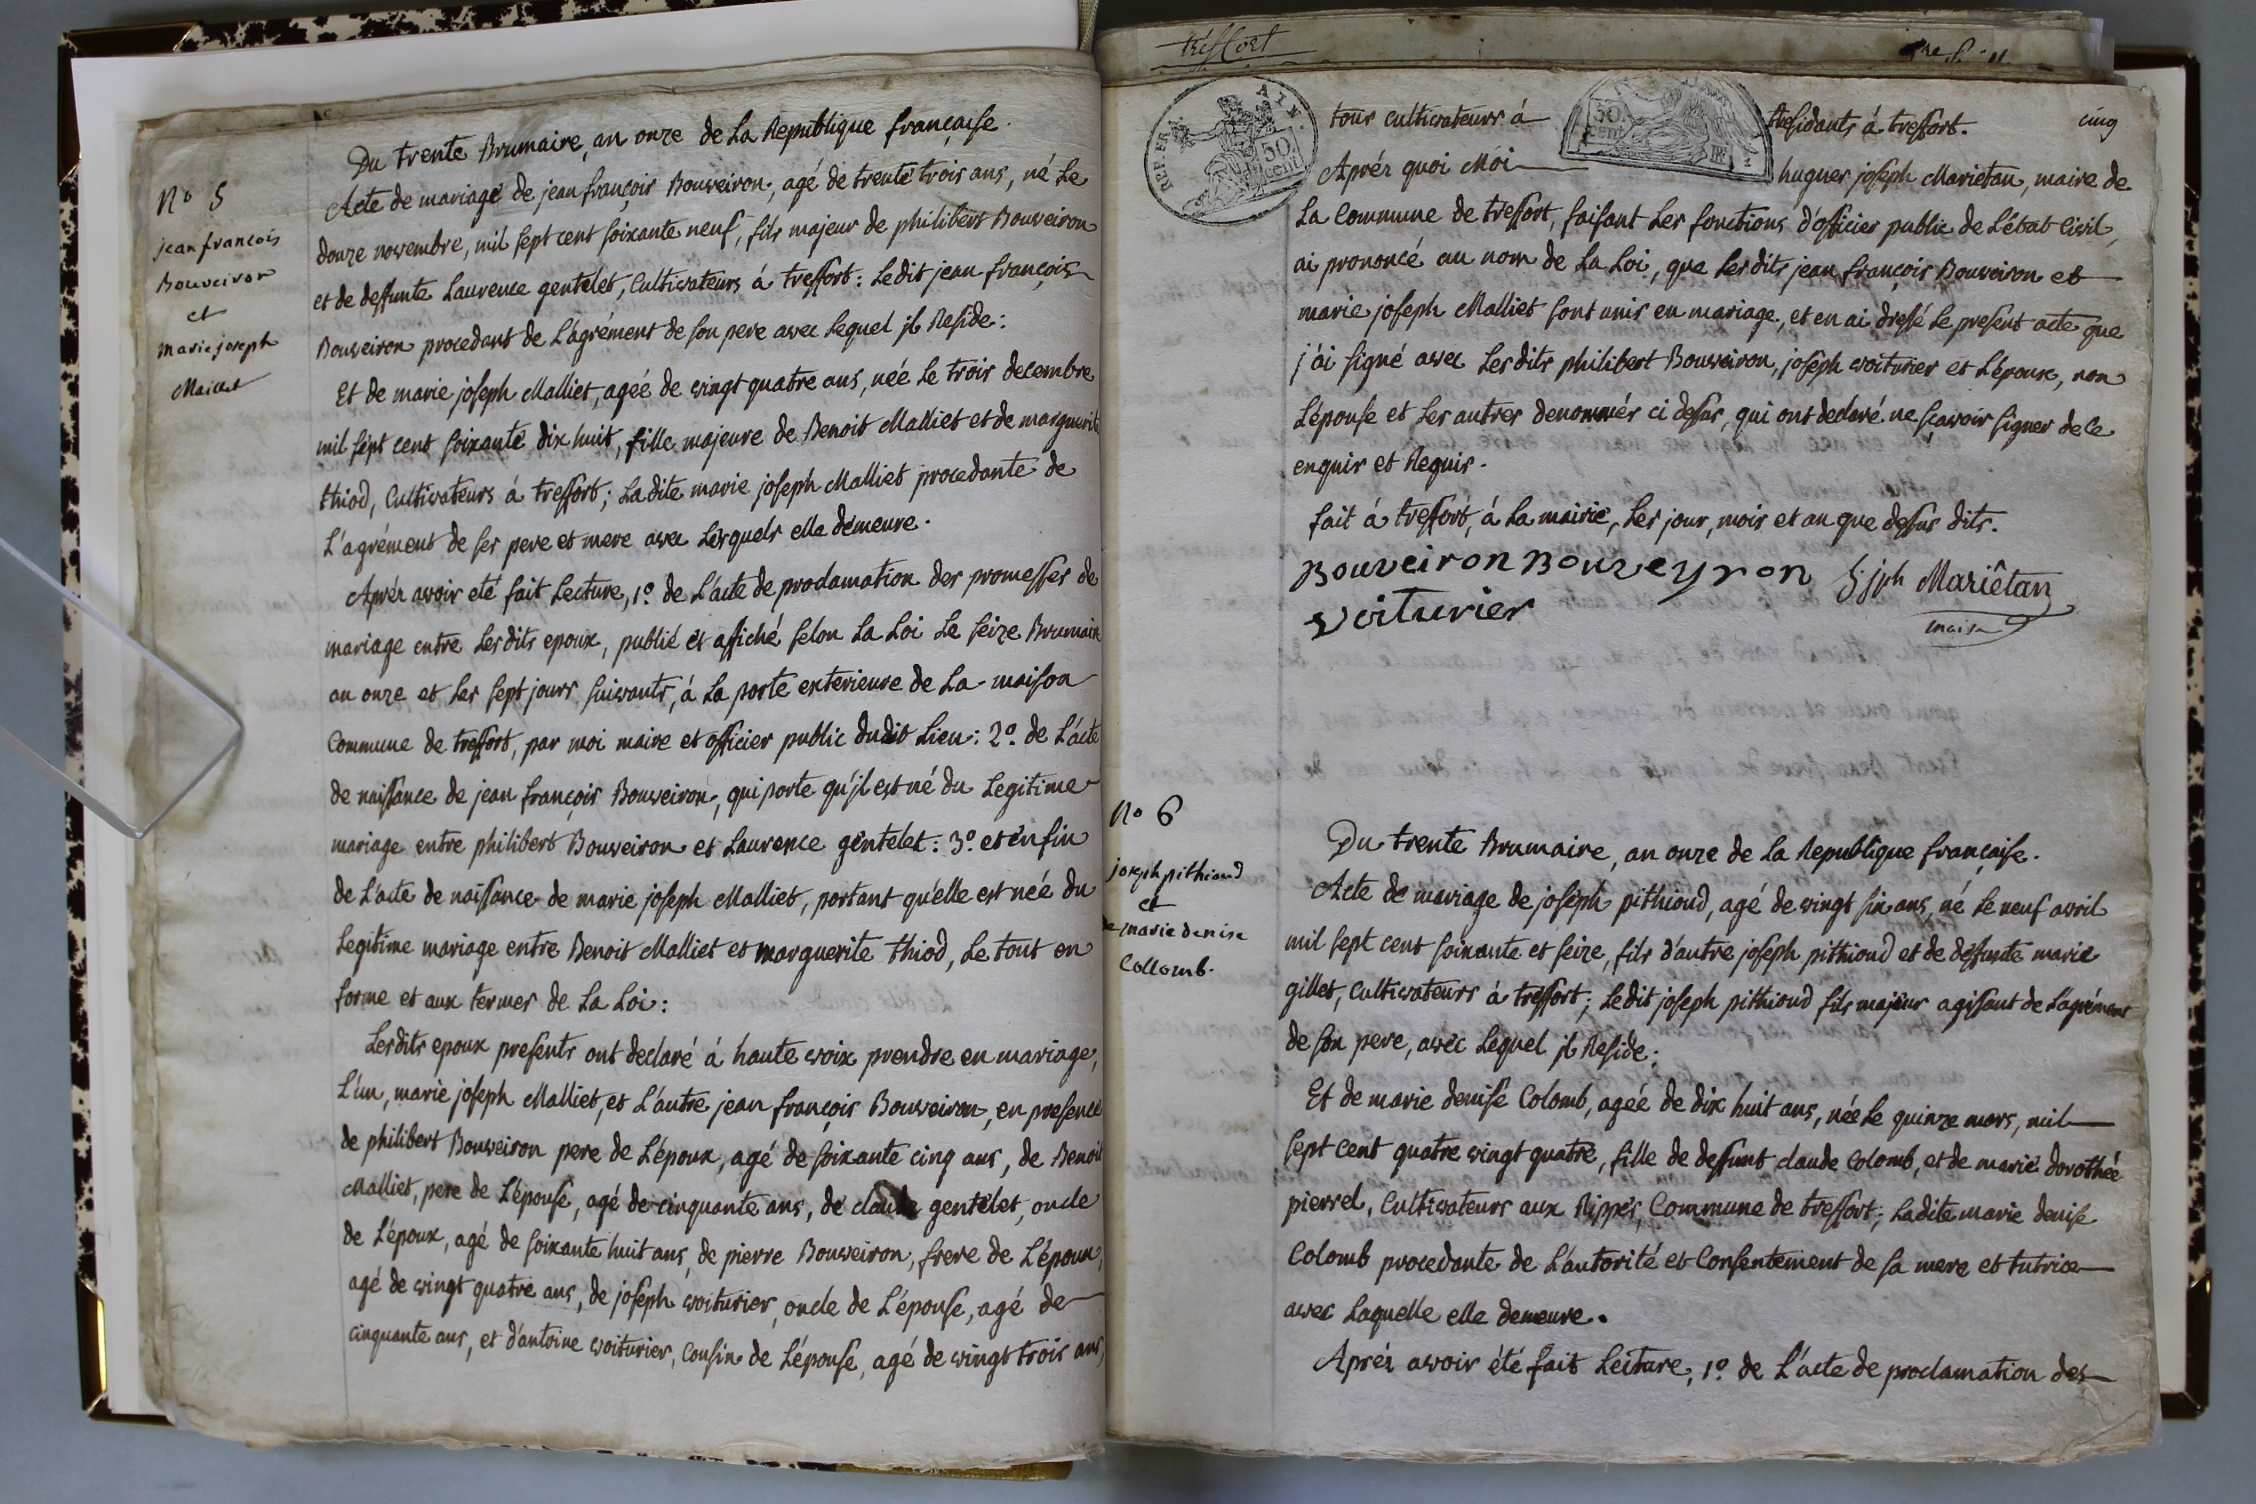 Du trente Brumaire, an onze de La Republique française.
N° 5
jean francois
Bouveiron
et
marie joseph
Maillet
Acte de mariage de jean françois Bouveiron, agé de trente trois ans, né Le
douze novembre, mil sept cent soixante neuf, fils majeur de philibert Bouveiron
et de deffunte Laurence gentelet, Cultivateurs á treffort: Ledit jean françois
Bouveiron procedant de L'agrément de son pere avec Lequel jl Reside:
Et de marie joseph Malliet, ageé de vingt quatre ans, néé Le trois decembre
mil sept cent soixante dix huit, fille majeure de Benoit Malliet et de marguerite
thiod, Cultivateurs á treffort; Ladite marie joseph Malliet procedante de
L'agrément de ses pere et mere avec Lesquels elle demeure.
Aprés avoir eté fait Lecture, 1.° de L'acte de proclamation des promesses de
mariage entre Lesdits epoux, publié et affiché selon La Loi Le seize Brumaire
an onze et Les sept jours suivants, á La porte exterieure de La maison
Commune de treffort, par moi maire et officier public dudit Lieu: 2.° de L'acte
de naissance de jean françois Bouveiron, qui porte qu'jl est né du Legitime
mariage entre philibert Bouveiron et Laurence gentelet: 3.° et enfin
de L'acte de naissance de marie joseph Malliet, portant qu'elle est néé du
Legitime mariage entre Benoit Malliet et marguerite thiod, Le tout en
forme et aux termes de La Loi:
Lesdits epoux presents ont declaré á haute voix prendre en mariage,
L'un, marie joseph Malliet, et L'autre jean françois Bouveiron, en presence
de philibert Bouveiron pere de L'époux, agé de soixante cinq ans, de Benoit
Malliet, pere de L'épouse, agé de cinquante ans, de claude gentelet, oncle
de L'époux, agé de soixante huit ans, de pierre Bouveiron, frere de L'époux,
agé de vingt quatre ans, de joseph voiturier, oncle de L'épouse, agé de
cinquante ans, et d'antoine voiturier, Cousin de L'épouse, agé de vingt trois ans,
treffort
AIN.
50 cent
50 cent
cinq
tous cultivateurs á Residants á treffort.
Aprés quoi Moi hugues joseph Mariétan, maire de
La Commune de treffort, faisant Les fonctions d'officier public de L'état Civil,
ai prononcé au nom de La Loi, que Lesdits jean françois Bouveiron et
marie joseph Malliet sont unis en mariage, et en ai dressé Le present acte que
j'ai signé avec Lesdits philibert Bouveiron, joseph voiturier et L'époux, non
L'épouse et Les autres denommés ci dessus, qui ont declaré ne sçavoir signer de Ce
enquis et Requis.
fait á treffort, á La mairie, Les jour, mois et an que dessus dits.
Bouveiron Bouveyron
jph Mariêtan
voiturier
maire
N° 6
joseph pithioud
et
marie denise
Collomb.
Du trente Brumaire, an onze de La Republique française.
Acte de mariage de joseph pithioud, agé de vingt six ans, né Le neuf avril
mil sept cent soixante et seize, fils d'autre joseph pithioud et de deffunte marie
gillet, Cultivateurs á treffort; Ledit joseph pithioud fils majeur agissant de L'agrément
de son pere, avec Lequel jl Reside:
Et de marie denise Colomb, ageé de dix huit ans, néé Le quinze mars, mil
sept cent quatre vingt quatre, fille de deffunt claude Colomb, et de marie dorothée
pierrel, Cultivateurs aux Rippes, Commune de treffort; Ladite marie denise
Colomb procedante de L'autorité et Consentement de sa mere et tutrice
avec Laquelle elle demeure.
Aprés avoir été fait Lecture, 1.° de L'acte de proclamation des